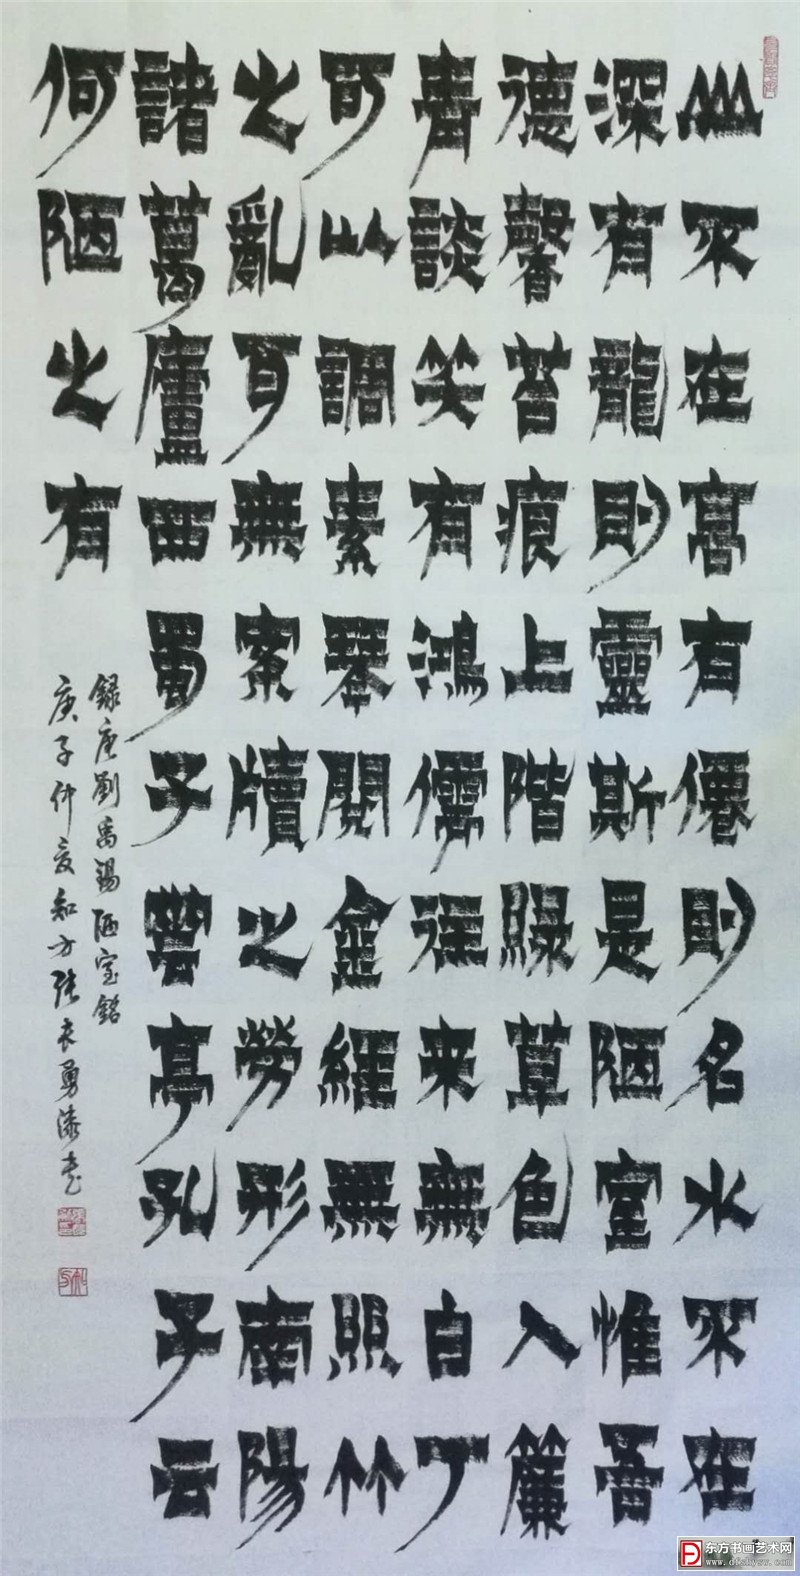 山不在高有僊則名水不在
深有龍則靈斯是陋室惟吾
德馨苔痕上階綠草色入簾
青談笑有鴻儒往来無白丁
可以調素琴閱金經無絲竹
之亂耳無案牘之勞形南陽
諸葛廬西蜀子雲亭孔子云
何陋之有
録唐劉禹锡陋室銘
庚子仲夏知方張勇漆書
东方书画艺术网
www.dfshysw.com